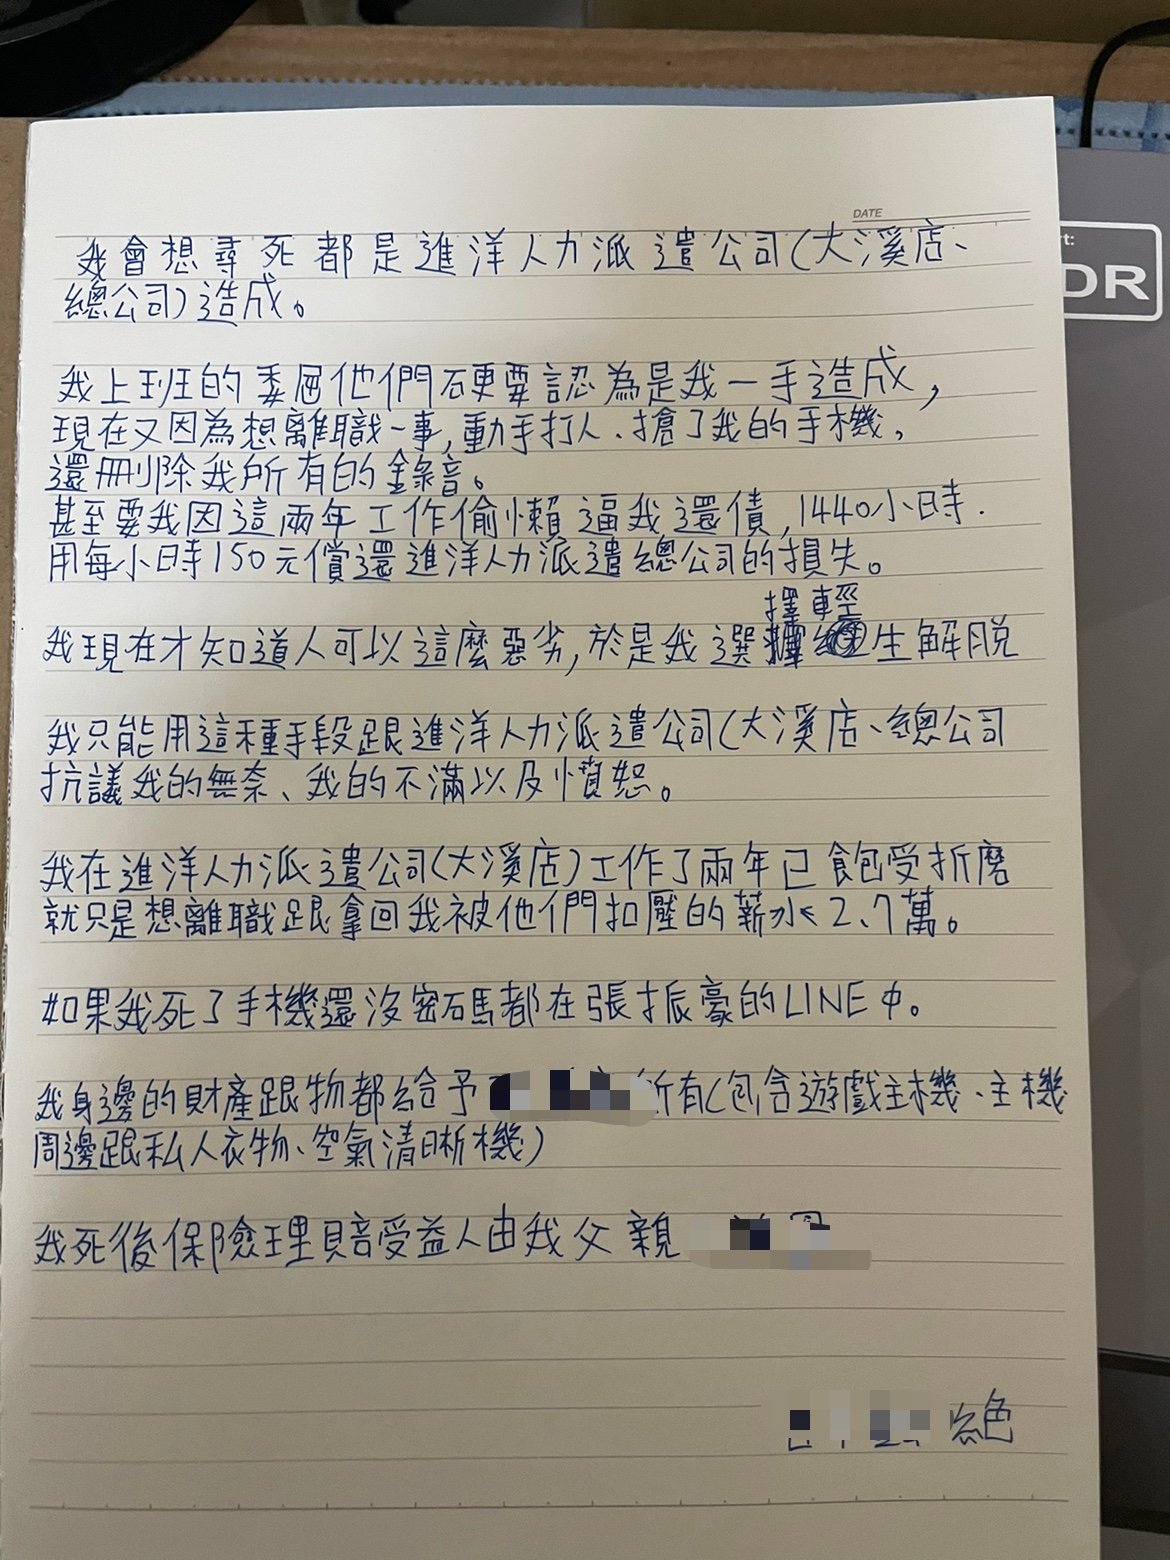 DATE
我會想尋死都是進洋人力派遣公司(大溪店、
總公司)造成。
我上班的委屈他們硬要認為是我一手造成,
現在又因為想離職一事,動手打人、搶了我的手機,
還刪除我所有的錄音。
甚至要我因這兩年工作偷懶逼我還債,1440小時.
用每小時150元償還進洋人力派遣總公司的損失。
擇輕
我現在才知道人可以這麼惡劣,於是我選生解脫
我只能用這種手段跟進洋人力派遣公司(大溪店、總公司
抗議我的無奈、我的不滿以及憤怒。
我在進洋人力派遣公司(大溪店)工作了兩年已飽受折磨
就只是想離職跟拿回我被他們扣壓的薪水2.7萬。
如果我死了手機還沒密碼都在張振豪的LINE中。
我身邊的財產跟物都給予所有(包含遊戲主機、主機
周邊跟私人衣物、空氣清晰機)
我死後保險理賠受益人由我父親
絕
rt:
DR